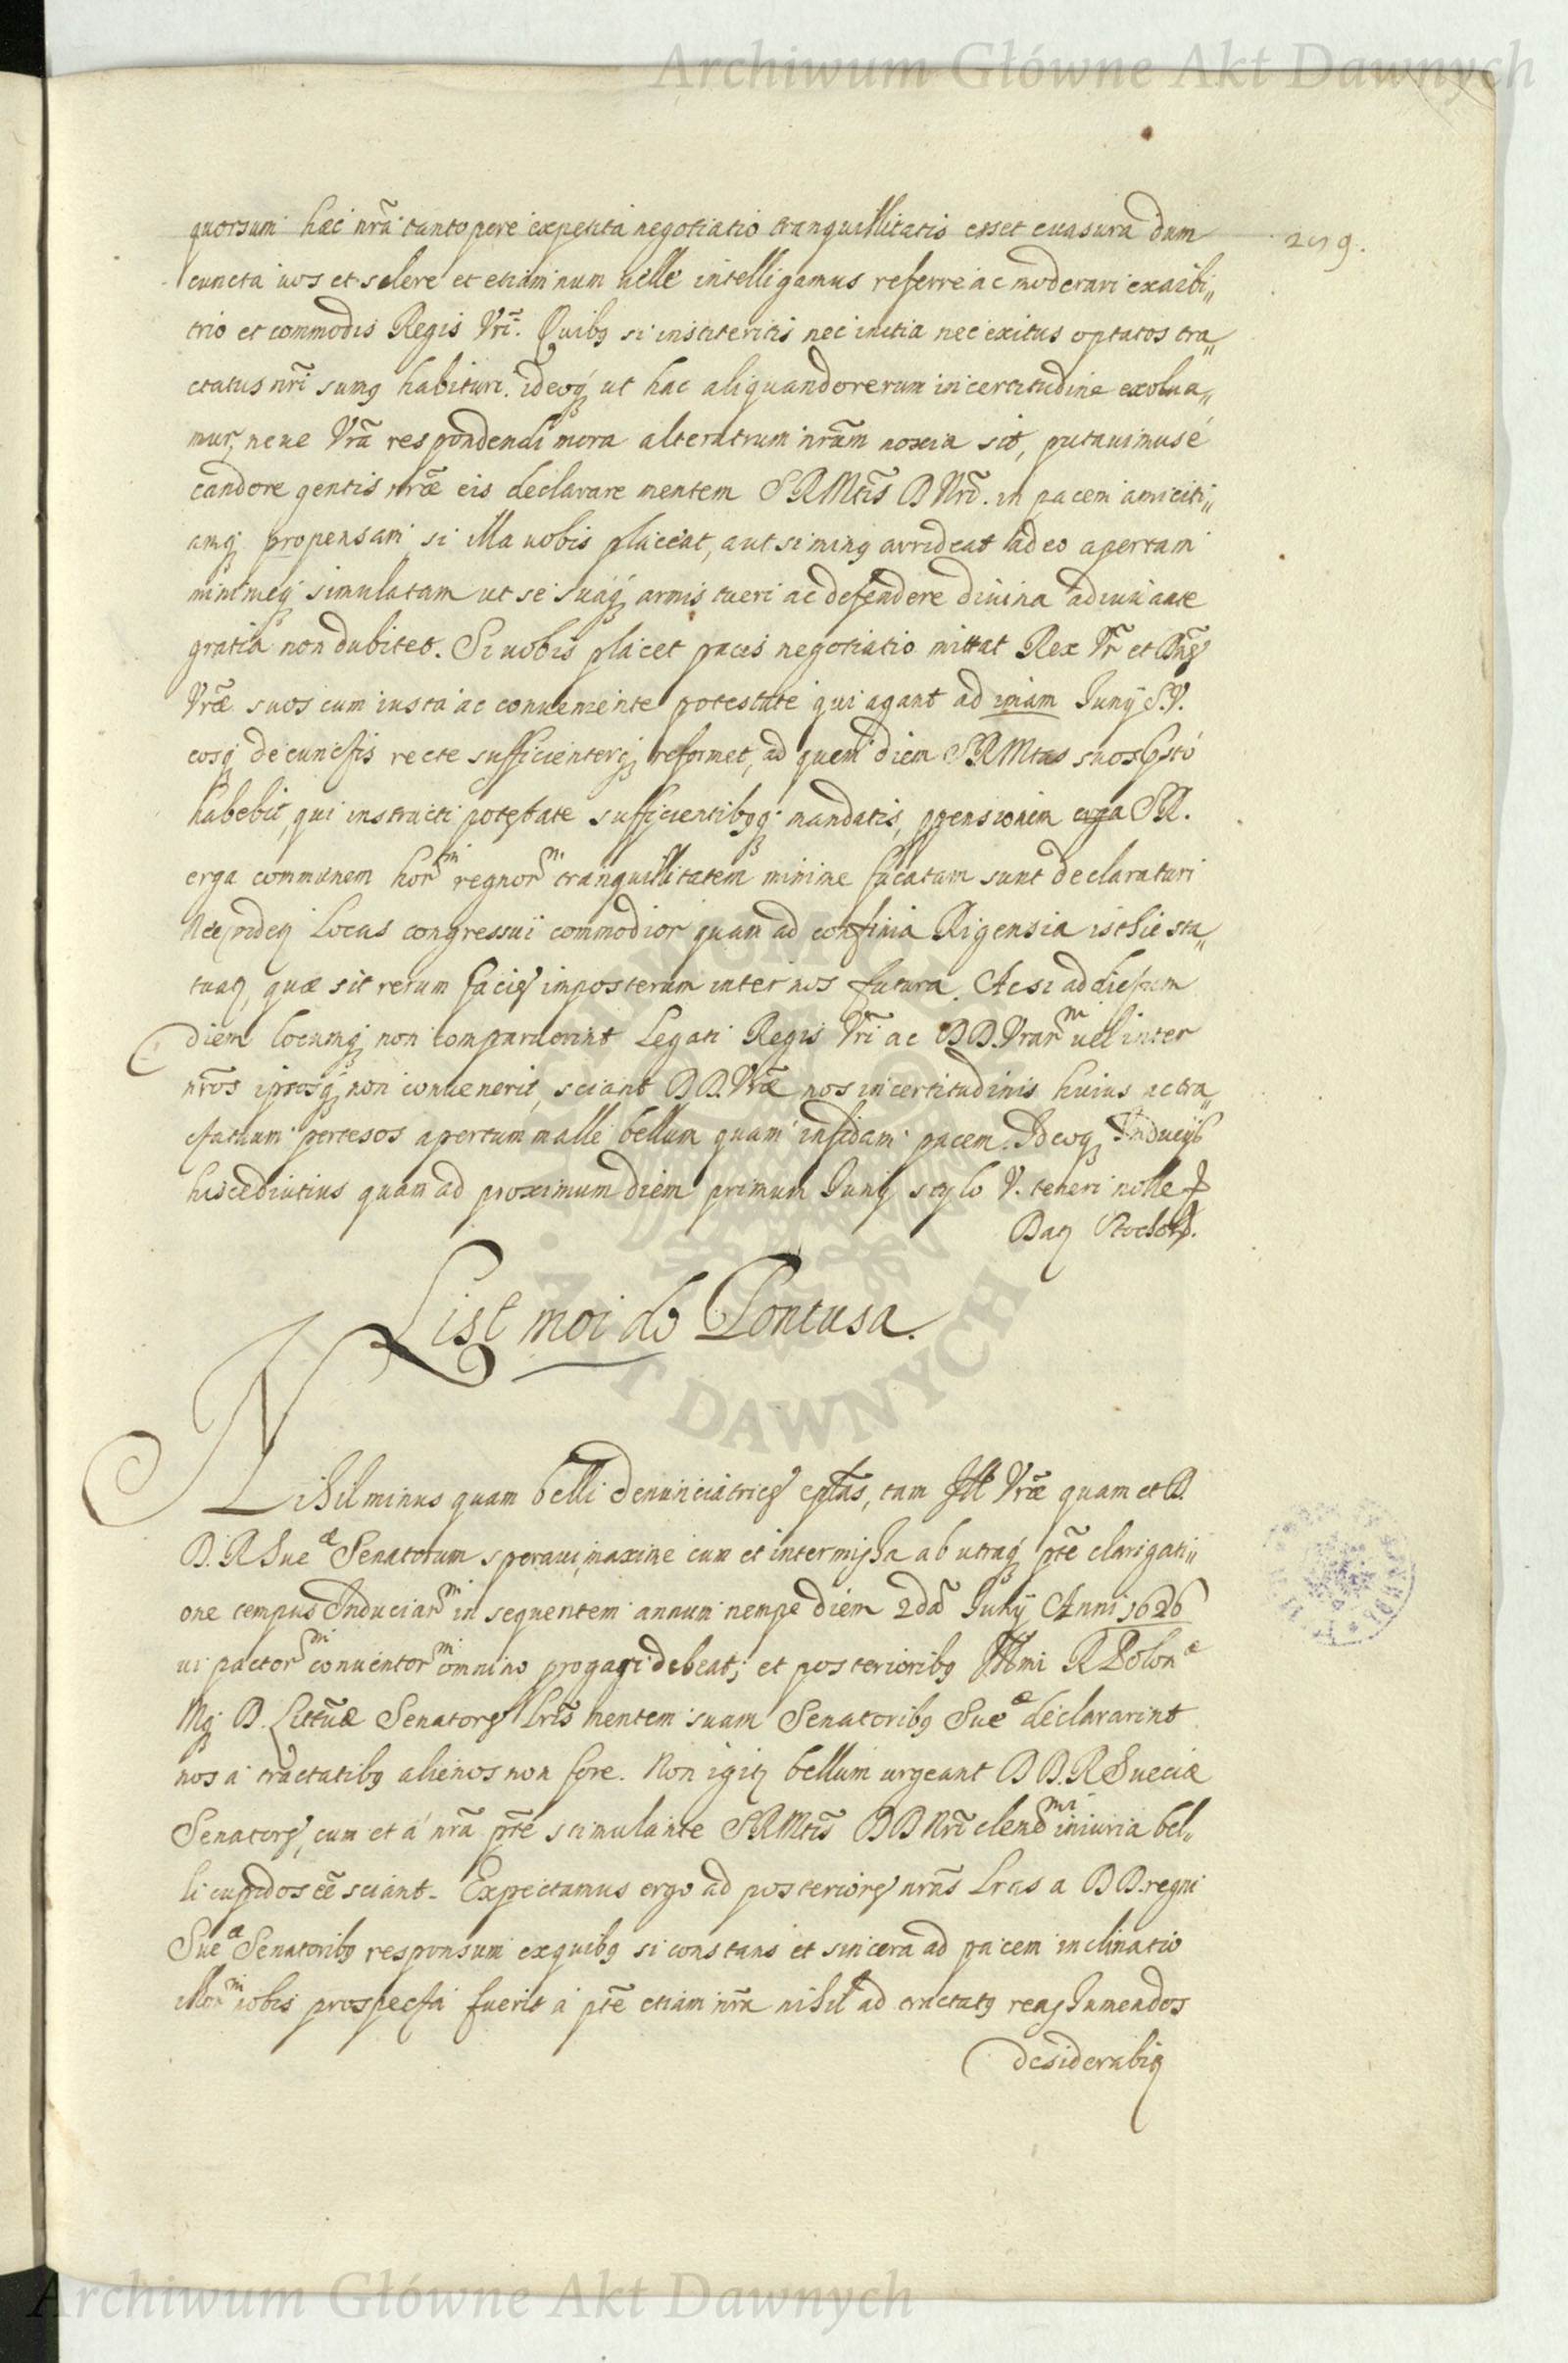 Archiwum Główne Akt Dawnych
quorsum hæc nr̃a tantopere expetita negotiatio tranquillitatis esset euasura dum
259.
cuncta uos et solere et etiam num uelle intelligamus referre ac moderari ex arbi„
trio et commodis Regis Vr̃i. Quibꝫ si institeritis nec initia nec exitus optatos tra„
ctatus nr̃i sumꝫ habituri. ideoqꝫ ut hac aliquando rerum incertitudine exolua„
mur, neue Vr̃a respondendi mora alterutrum nr̃am noxia sit, putauimus é
candore gentis nr̃æ eis declarare mentem SRMtis D Nr̃i. in pacem amiciti„
amqꝫ propensam si illa uobis placeat, aut si minꝫ arrideat adeo apertam
minimeqꝫ simulatam ut se suaqꝫ armis tueri ac defendere diuina adiuuante
gratia non dubitet. Si uobis placet pacis negotiatio mittat Rex Vr̃ et
Vr̃æ suos cum iusta ac conueniente potestate qui agant ad imam Iunij S.V.
eosqꝫ de cunctis recte sufficienterqꝫ reformet, ad quem diem SRMtas suos
habebit, qui instructi potestate sufficientibꝫqꝫ mandatis, ppensionem erga SR.
erga communem horm regnorm tranquillitatem minime fucatam sunt declaraturi
Locus congressui commodior quam ad confinia Rigensia isthic sta„
tuaꝫ, quæ sit rerum facies imposterum inter nos futura. Ac si ad dictum
diem locumqꝫ non comparuerint Legati Regis Vr̃i ac DD.Vrarm uel inter
nr̃os ipsosqꝫ non conuenerit, sciant DD.Vr̃æ nos incertitudinis huius ac tra„
ctatuum pertesos apertum malle bellum quam infidam pacem. Ideoqꝫ Inducijs
hisce diutius quam ad proximum diem primum Iunij stylo V. teneri nolle
Daꝫ Stocholm.
List moi do Pontusa.
Nihil minus quam belli denunciatrices eptas, tam Ill Vr̃æ quam et D.
D. R Sueæ Senatorum speraui, maxime cum et intermissa ab utraqꝫ pte clarigati„
one tempus Induciarm in sequentem annum nempe diem 2da Iunij Anni 1626
ui pactorm conuentorm omnino progagi debeat; et posterioribꝫ Illmi R Polonæ
Mqꝫ D. Littuæ Senatores Lr̃is mentem suam Senatoribꝫ Sueæ declararint
nos a tractatibꝫ alienos non fore. Non igiꝫ bellum urgeant DD.R Sueciæ
Senatores, cum et á nr̃a pte stimulante SRMtis DD Nr̃i clemmi iniuria bel„
li cupidos ee sciant. Expectamus ergo ad posteriores nr̃as Lras a DD.regni
Sueæ Senatoribꝫ responsum ex quibꝫ si constans et sincera ad pacem inclinatio
illorm nobis prospecta fuerit á pte etiam nr̃a nihil ad tractatꝫ reassumendos
desiderabiꝫ
Archiwum Główne Akt Dawnych